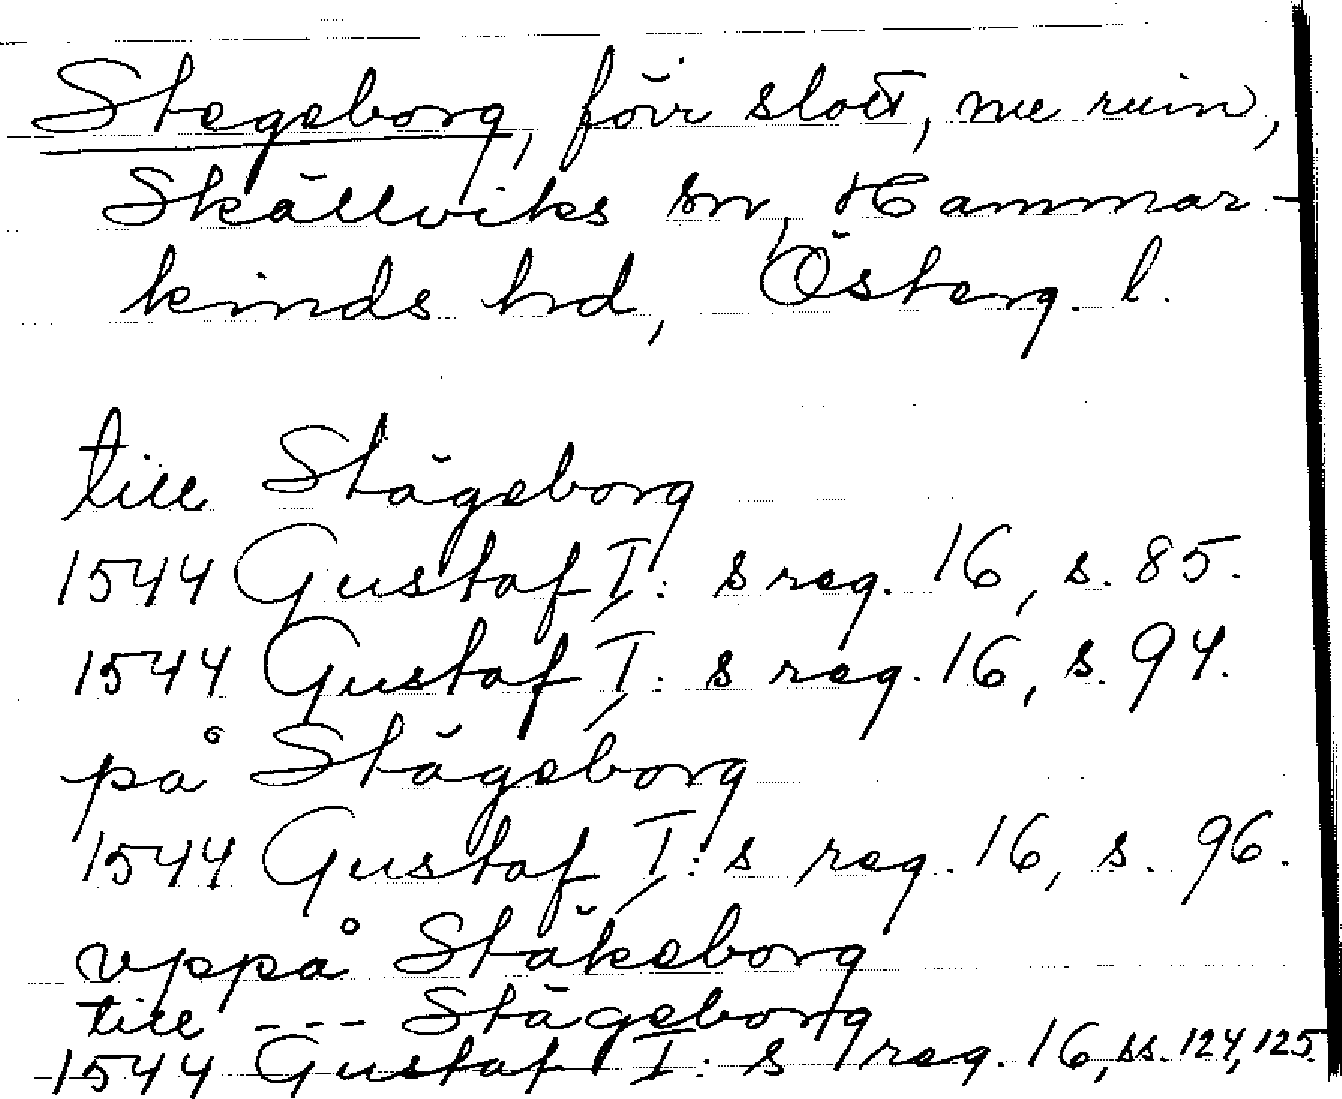 Stegeborg, förr slott, nu ruin,
Skällviks sn, Hammar-
kinds hd, Österg. l.
till Stägeborg
1544 Gustaf I: s reg. 16, s. 85.
1544 Gustaf I: s reg. 16, s. 94.
på Stägeborg
1544 Gustaf I: s reg. 16, s. 96.
vppå Stäkeborg
till --- Stägeborg
1544 Gustaf I: s reg. 16, ss. 124, 125.